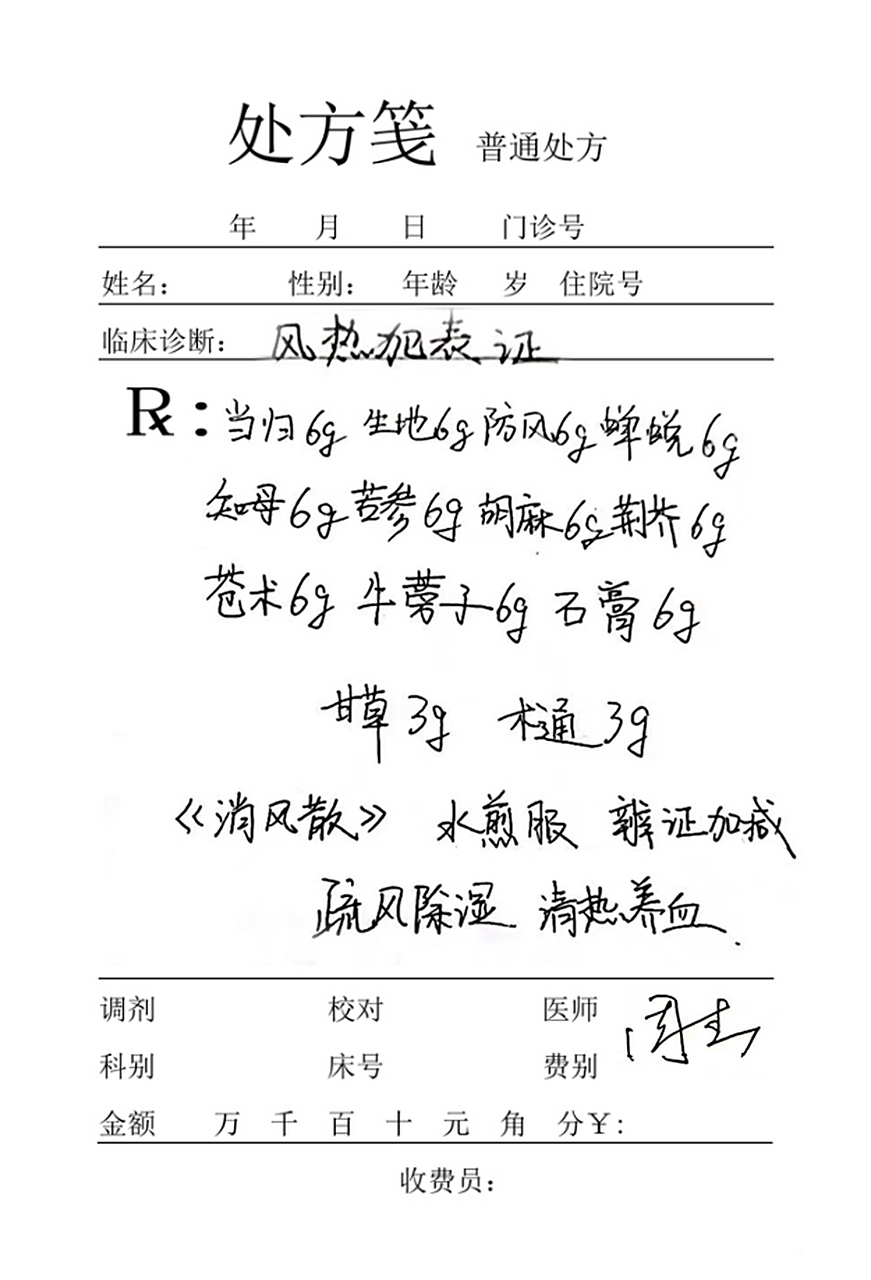 处方笺 普通处方
年 月 日 门诊号
姓名： 性别： 年龄 岁 住院号
临床诊断： 风热犯表证
Rx：当归6g 生地6g 防风6g 蝉蜕6g
知母6g 苦参6g 胡麻6g 荆芥6g
苍术6g 牛蒡子6g 石膏6g
甘草3g 木通3g
《消风散》 水煎服 辨证加减
疏风除湿 清热养血.
调剂 校对 医师
科别 床号 费别
金额 万 千 百 十 元 角 分￥:
收费员：